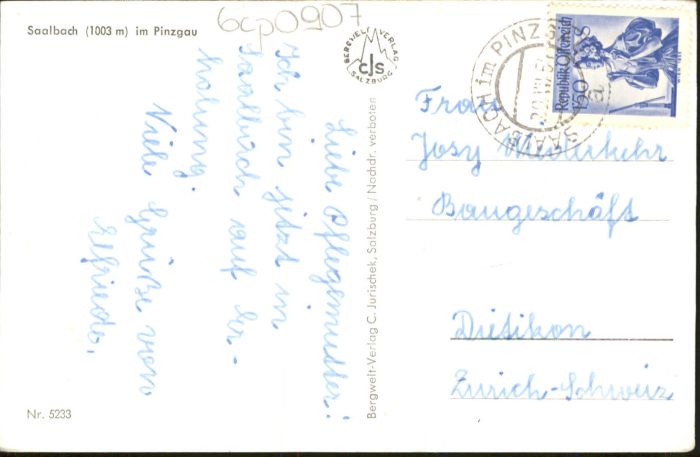 Saalbach (1003 m) im Pinzgau
6cp0907
BERGWELT VERLAG
cJs
SALZBURG
Liebe Pflegemutter!
Ich bin jetzt in
Saalbach auf Er-
holung.
Viele Grüße von
Elfriede.
Bergwelt-Verlag C. Jurischek, Salzburg / Nachdr. verboten
SAALBACH im PINZGAU
a
REPUBLIK ÖSTERREICH
1.50
Frau
Josy Wiederkehr
Baugeschäft
Dietikon
Zürich-Schweiz
Nr. 5233